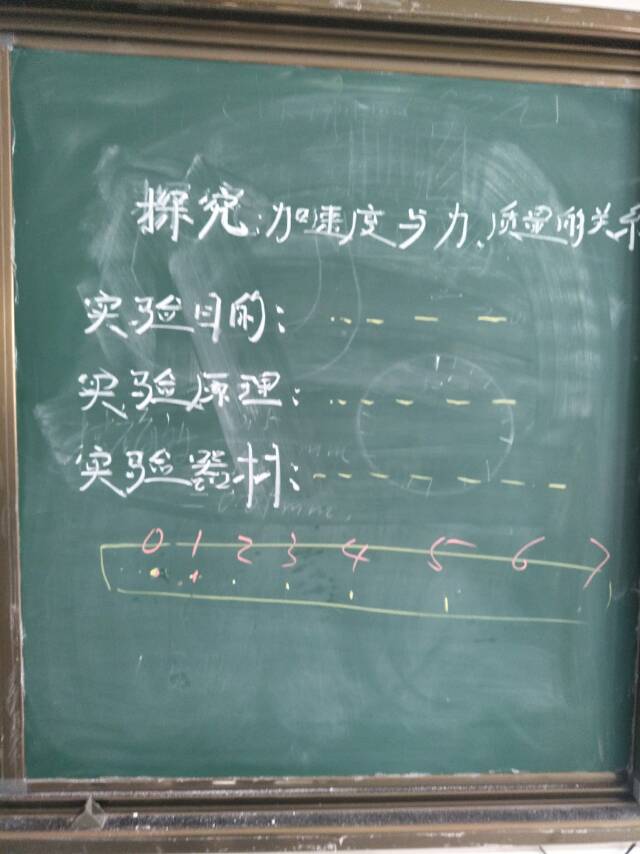 探究:加速度与力、质量的关系
实验目的:
实验原理:
实验器材:
0 1 2 3 4 5 6 7